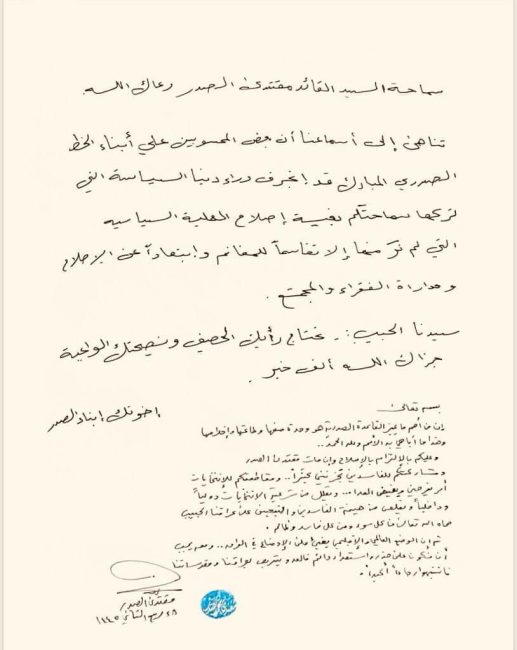 سماحة السيد القائد مقتدى الصدر رعاك الله
تناهى إلى أسماعنا أن بعض المحسوبين على أبناء الخط
الصدري المبارك قد انجرف وراء دنيا السياسة التي
تركها سماحتكم بغية إصلاح العملية السياسية
التي لم نرَ منها إلا تقاسماً للمغانم وابتعاداً عن الإصلاح
ومداراة الفقراء والمجتمع .
سيدنا الحبيب :. نحتاج رأيك الحصيف ونصيحتك الواعية
جزاك الله ألف خير .
إخوتك أبناء الصدر
بسمه تعالى
إن من أهم ما يميز القاعدة الصدرية هو وحدة صفها وطاعتها وإخلاصها
وهذا ما أباهي به الأمم ولله الحمد..
وعليكم بالالتزام بالإصلاح وإن مات مقتدى الصدر
ومشاركتكم للفاسدين تحزنني كثيراً.. ومقاطعتكم للإنتخابات
أمر يفرحني ويغيض العدا.. ويقلل من شرعية الانتخابات دولياً
وداخلياً ويقلص من هيمنة الفاسدين والتبعيين على عراقنا الحبيب
حماه الله تعالى من كل سوء ومن كل فاسد وظالم.
ثم إن الوضع العالمي والإقليمي على الأوضاع في العراق.. ومعه يجب
أن نكون على حذر واستعداد دائم
فانتبهوا رجاءً أكيداً.
مقتدى الصدر
٢٨ ربيع الثاني ١٤٤٥